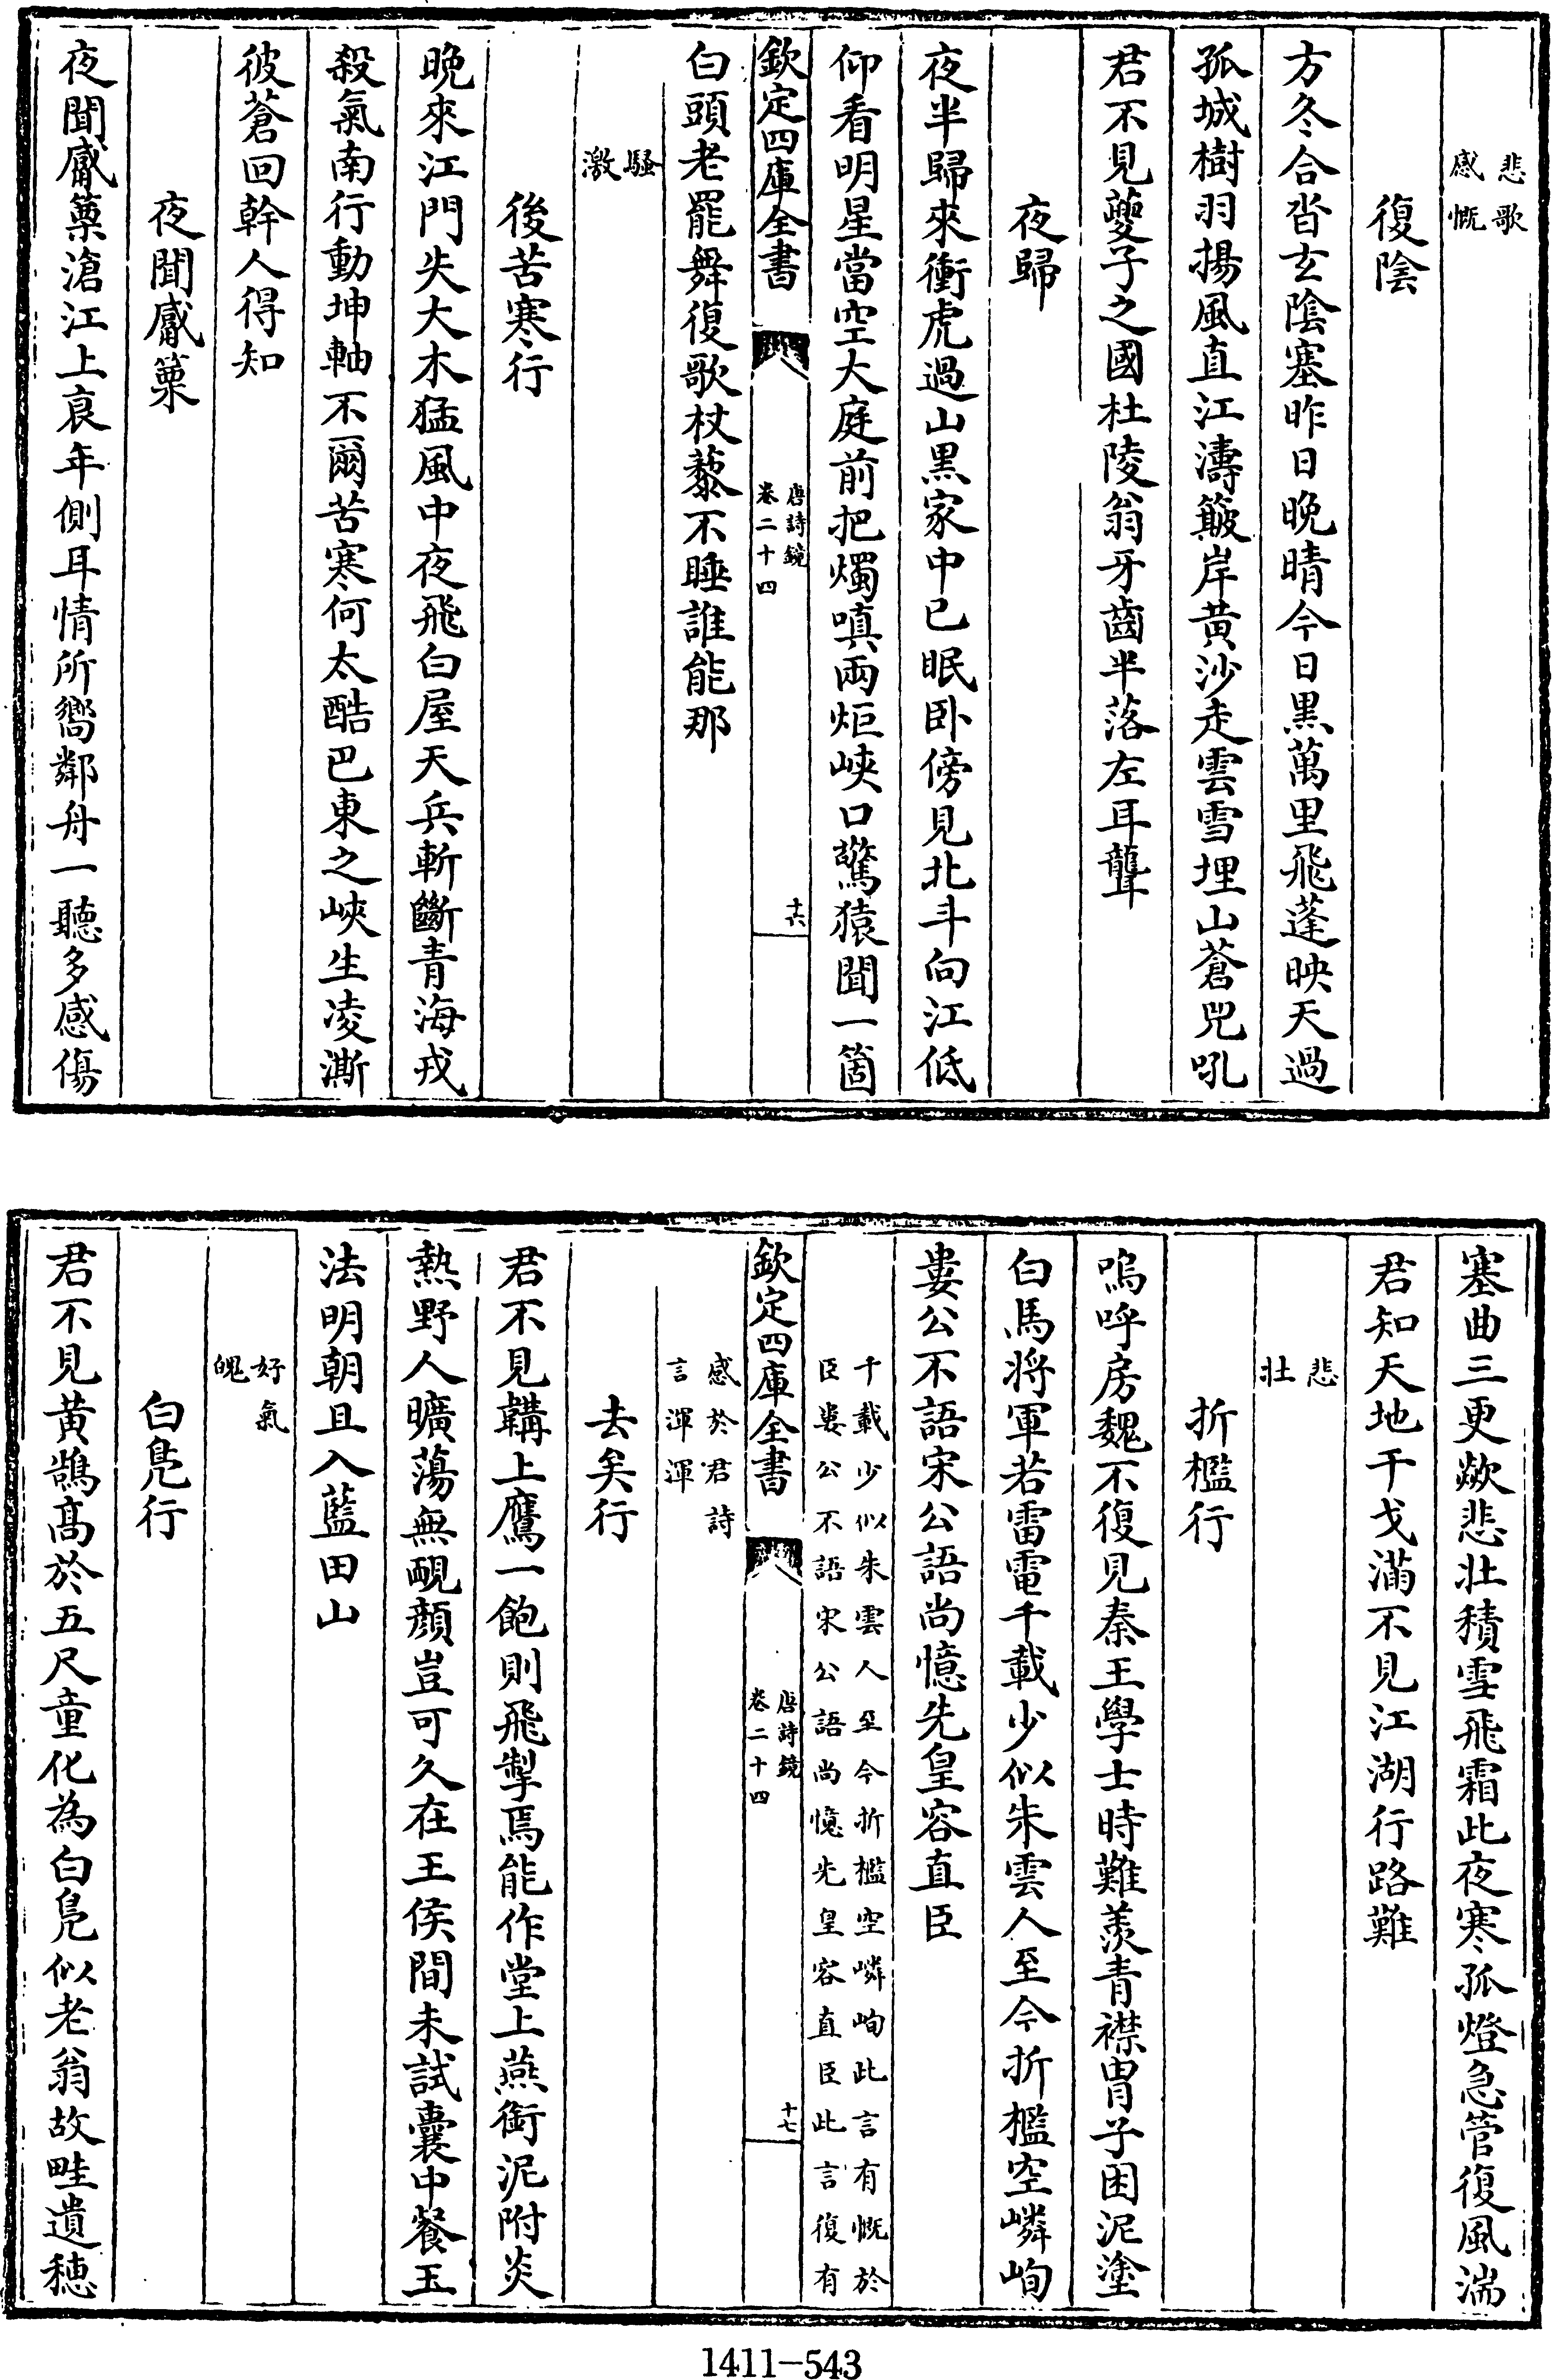 悲歌
感慨
復陰
方冬合沓玄陰塞昨日晚晴今日黒萬里飛蓬映天過
孤城樹羽揚風直江濤簸岸黄沙走雲雪埋山蒼兕吼
君不見夔子之國杜陵翁牙齒半落左耳聾
夜歸
夜半歸來衝虎過山黒家中已眠卧傍見北斗向江低
仰看明星當空大庭前把燭嗔兩炬峽口驚猿聞一箇
欽定四庫全書
唐詩鏡
卷二十四
十六
白頭老罷舞復歌杖藜不睡誰能那
騷
激
後苦寒行
晚來江門失大木猛風中夜飛白屋天兵斬斷青海戎
殺氣南行動坤軸不爾苦寒何太酷巴東之峽生凌澌
彼蒼回斡人得知
夜聞觱篥
夜聞觱篥滄江上哀年側耳情所嚮鄰舟一聽多感傷
塞曲三更歘悲壯積雪飛霜此夜寒孤燈急管復風湍
君知天地干戈滿不見江湖行路難
悲
壯
折檻行
嗚呼房魏不復見秦王學士時難羨青襟胄子困泥塗
白馬將軍若雷電千載少似朱雲人至今折檻空嶙峋
婁公不語宋公語尚憶先皇容直臣
千載少似朱雲人至今折檻空嶙峋此言有慨於
臣婁公不語宋公語尚憶先皇容直臣此言復有
欽定四庫全書
唐詩鏡
卷二十四
十七
感於君詩
言渾渾
去矣行
君不見韝上鷹一飽則飛掣焉能作堂上燕銜泥附炎
熱野人曠蕩無靦顔豈可久在王侯間未試囊中餐玉
法明朝且入藍田山
好氣
魄
白鳧行
君不見黄鵠髙於五尺童化為白鳧似老翁故畦遺穗
1411-543